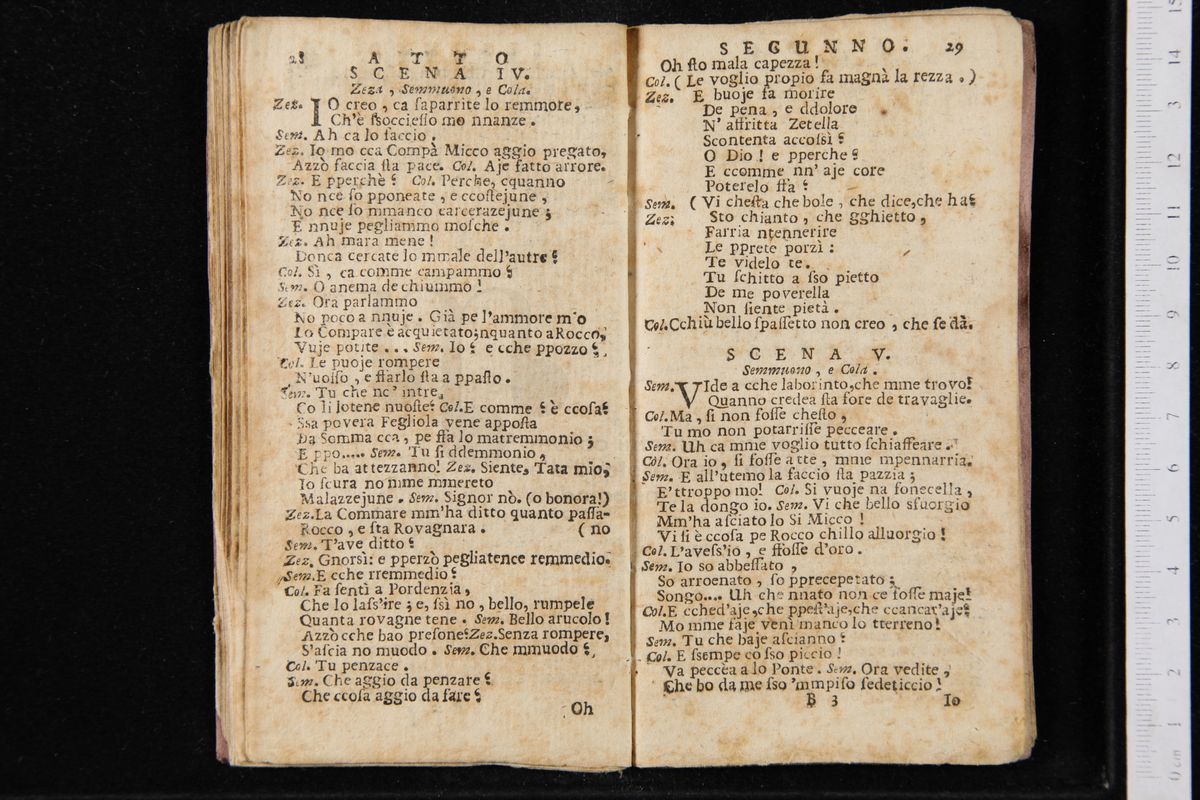 28 ATTO
SCENA IV.
Zeza, Semmuono, e Cola.
Zez. IO creo, ca ſaparrite lo remmore,
Ch'è ſsoccieſſo mo nnanze.
Sem. Ah ca lo ſaccio.
Zez. Io mo cca Compà Micco aggio pregato,
Azzò faccia ſta pace. Col. Aje fatto arrore.
Zez. E pperchè? Col. Perche, cquanno
No nce ſo pponeate, e ccoſtejune,
No nce ſo mmanco carcerazejune;
E nnuje pegliammo moſche.
Zez. Ah mara mene!
Donca cercate lo mmale dell'autre?
Col. Sì, ca comme campammo?
Sem. O anema de chiummo!
Zez. Ora parlammo
No poco a nnuje. Già pe l'ammore mio
Lo Compare è acquietato; nquanto a Rocco,
Vuje potite ... Sem. Io? e cche ppozzo?
Col. Le puoje rompere
N'uoſſo, e ffarlo ſta a ppaſto.
Sem. Tu che nc'intre
Co li jotene nuoſte? Col. E comme? è ccoſa?
Ssa povera Fegliola vene appoſta
Da Somma cca, pe ffà lo matremmonio;
E ppo..... Sem. Tu ſi ddemmonio,
Che ba attezzanno! Zez. Siente, Tata mio,
Io ſcura no mme mmereto
Malazzejune. Sem. Signor nò. (o bonora!)
Zez. La Commare mm'ha ditto quanto paſſa-
Rocco, e ſta Rovagnara. (no
Sem. T'ave ditto?
Zez. Gnorsì: e pperzò pegliatence remmedio.
Sem. E cche rremmedio?
Col. Fa ſentì a Pordenzia,
Che lo laſs'ire; e, ſsì no, bello, rumpele
Quanta rovagne tene. Sem. Bello arucolo!
Azzò cche bao preſone? Zez. Senza rompere,
S'aſcia no muodo. Sem. Che mmuodo?
Col. Tu penzace.
Sem. Che aggio da penzare?
Che ccoſa aggio da fare?
Oh
SEGUNNO. 29
Oh ſto mala capezza!
Col. (Le voglio propio fa magnà la rezza.)
Zez. E buoje fa morire
De pena, e ddolore
N'affritta Zetella
Scontenta accoſsì?
O Dio! e pperche?
E ccomme nn'aje core
Poterelo ffà?
Sem. (Vi cheſta che bole, che dice, che ha?
Zez: Sto chianto, che gghietto,
Farria ntennerire
Le pprete porzì:
Te videlo te.
Tu ſchitto a ſso pietto
De me poverella
Non ſiente pietà.
Col. Cchiù bello ſpaſſetto non creo, che ſe dà.
SCENA V.
Semmuono, e Cola.
Sem. VIde a cche laborinto, che mme trovo!
Quanno credea ſta fore de travaglie.
Col. Ma, ſi non foſſe cheſto,
Tu mo non potarriſſe pecceare.
Sem. Uh ca mme voglio tutto ſchiaffeare.
Col. Ora io, ſi foſſe a tte, mme mpennarria.
Sem. E all'utemo la faccio ſta pazzia;
E' ttroppo mo! Col. Si vuoje na fonecella,
Te la dongo io. Sem. Vi che bello sfuorgio
Mm'ha aſciato lo Si Micco!
Vi ſi è ccoſa pe Rocco chillo alluorgio!
Col. L'aveſs'io, e ffoſſe d'oro.
Sem. Io so abbeſſato,
So arroenato, ſo pprecepetato;
Songo.... Uh che nnato non ce foſſe maje!
Col. E cched'aje, che ppeſt'aje, che ccancar'aje?
Mo mme faje venì manco lo tterreno!
Sem. Tu che baje aſcianno?
Col. E ſsempe co ſso piccio!
Va peccèa a lo Ponte. Sem. Ora vedite,
Che bo da me ſso 'mmpiſo ſedeticcio!
B 3 Io